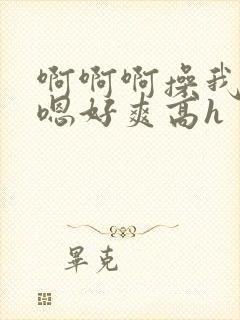 啊啊啊操我
嗯好爽高h
畢克